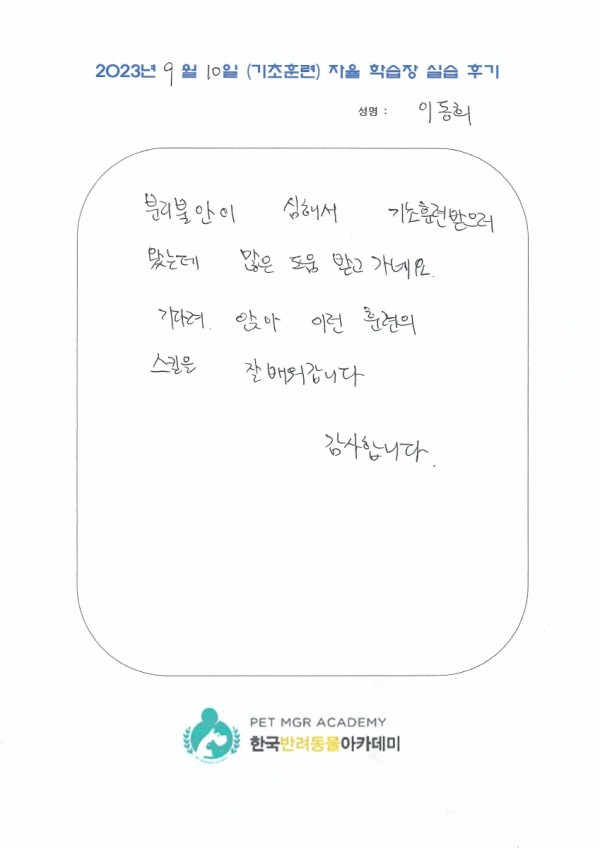 2023년 9월 10일 (기초훈련) 자율 학습장 실습 후기
성명 : 이동희
분리불안이 심해서 기초훈련받으러
왔는데 많은 도움 받고 가네요.
기다려. 앉아 이런 훈련의
스킬을 잘 배워갑니다
감사합니다.
PET MGR ACADEMY
한국반려동물아카데미